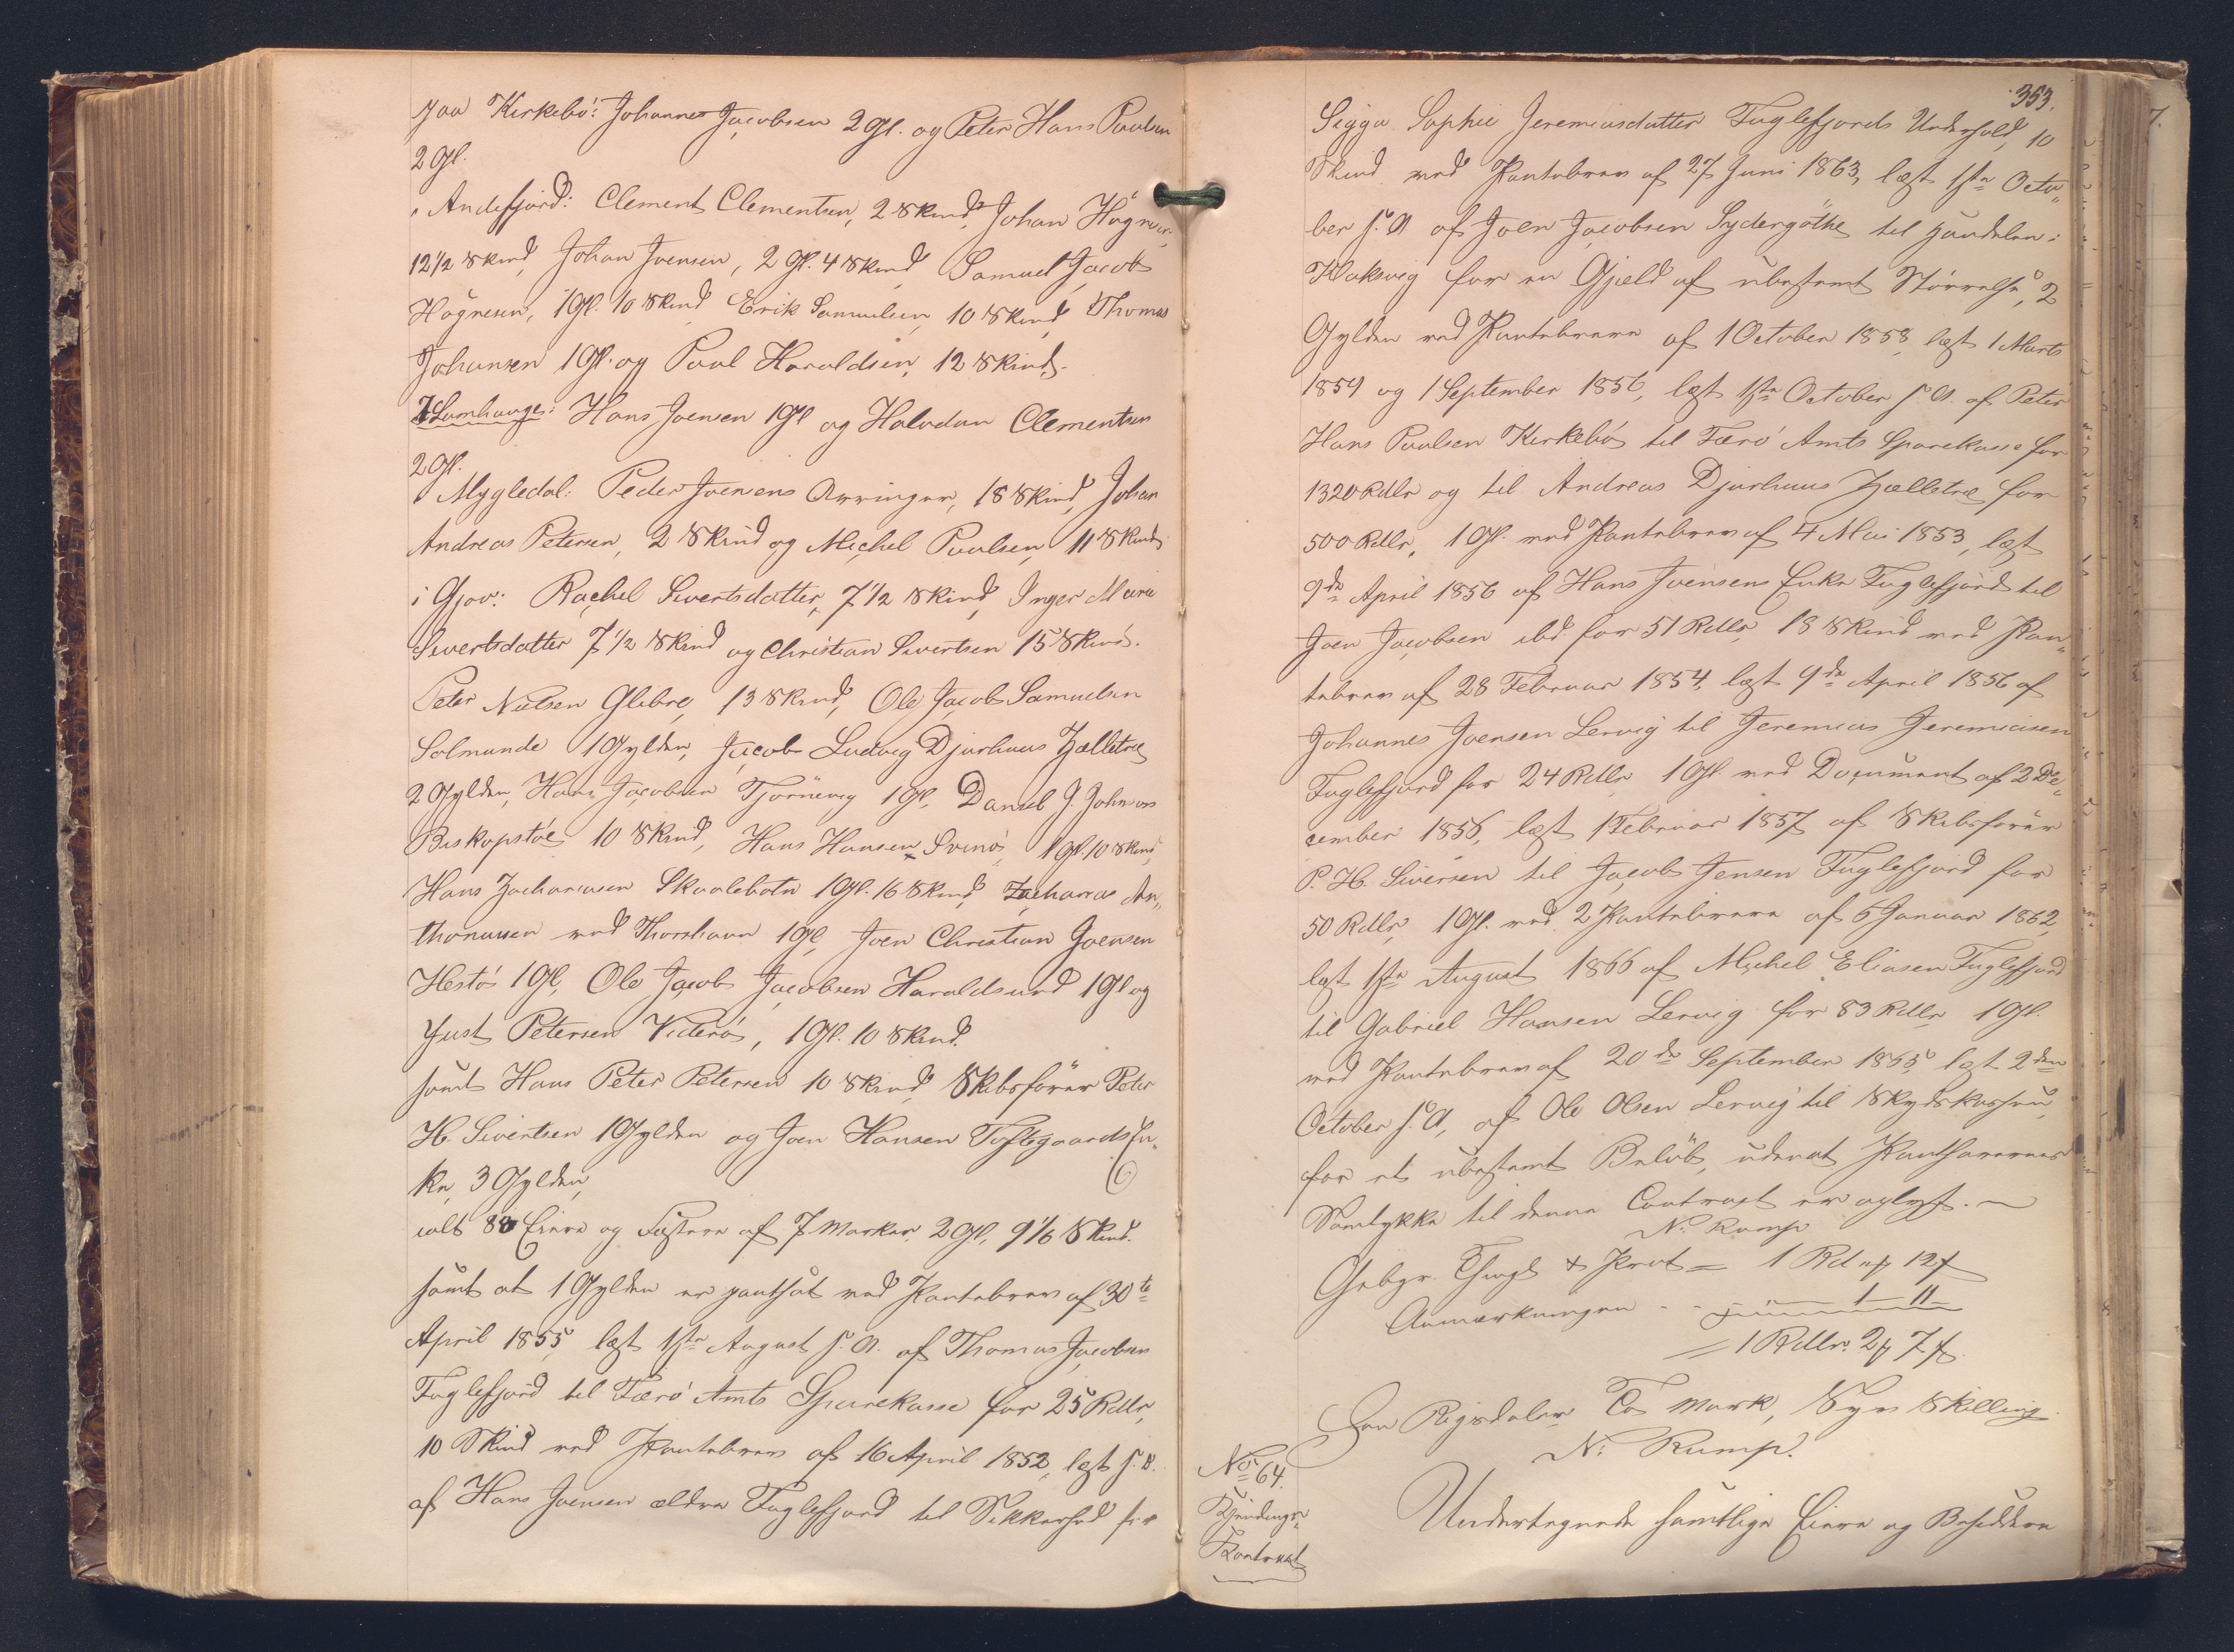 paa Kirkebö: Johannes Jacobsen 2 Gl. og Peter Hans Poulsen
2 Gl.
i Andefjord: Clement Clementsen, 2 Skind, Johan Högnesen,
12 1/2 Skind, Johan Joensen, 2 Gl. 4 Skind, Samuel Jacob
Högnesen, 1 Gl. 10 Skind, Erik Samuelsen, 10 Skind, Thomas
Johansen 1 Gl. og Poul Haraldsen, 12 Skind.
i Lamhauge: Hans Joensen 1 Gl og Halvdan Clementsen
2 Gl.
i Mygledal: Peder Joensens Arvinger, 18 Skind, Johan
Andreas Petersen, 2 Skind og Michel Poulsen, 11 Skind
i Gjov: Rachel Sivertsdatter, 7 1/2 Skind, Inger Marie
Sivertsdatter 7 1/2 Skind og Christian Sivertsen 15 Skind.
Peter Nielsen Glibre, 13 Skind, Ole Jacob Samuelsen
Solmunde 1 Gylden, Jacob Ludvig Djurhuus Hælletræ
2 Gylden, Hans Jacobsen Tjörnevig 1 Gl, Daniel J. Johnsens
Biskopstöe 10 Skind, Hans Hansen Svinö, 1 Gl. 10 Skind,
Hans Zachariasen Skaalebotn 1 Gl. 16 Skind, Zacharias An„
thoniussen ved Thorshavn 1 Gl, Joen Christian Joensen
Hestö 1 Gl, Ole Jacob Jacobsen Haraldsund 1 Gl og
Just Petersen Viderö, 1 Gl. 10 Skind.
samt Hans Peter Petersen 10 Skind, Skibsförer Peter
H. Sivertsen 1 Gylden og Joen Hansen Toftegaards En„
ke, 3 Gylden,
ialt 88 Eiere og Fæstere af 7 Marker 2 Gl. 9 1/6 Skind.
samt at 1 Gylden er pantsat ved Pantebrev af 30te
April 1855, læst 1ste August s. A. af Thomas Jacobsen
Fuglefjord til Færö Amts Sparekasse for 25 Rdlr,
10 Skind ved Pantebrev af 16 April 1852, læst s. A.
af Hans Joensen ældre Fuglefjord til Sikkerhed for
353.
Sigga Sophie Jeremiasdatter Fuglefjords Underhold, 10
Skind ved Pantebrev af 27 Juni 1863, læst 1ste Octo„
ber s. A af Joen Jacobsen Sydergöthe til Handelen i
Klaksvig for en Gjæld af ubestemt Størrelse, 2
Gylden ved Pantebreve af 1 October 1858, læst 1 Marts
1859 og 1 September 1856, læst 1ste October s. A. af Peter
Hans Poulsen Kirkebö til Færö Amts Sparekasse for
1320 Rdlr og til Andreas Djurhuus Hælletræ for
500 Rdlr, 1 Gl. ved Pantebrev af 4 Mai 1853, læst
9de April 1856 af Hans Joensens Enke Fuglefjord til
Joen Jacobsen ibd for 51 Rdlr, 18 Skind ved Pan„
tebrev af 28 Februar 1854, læst 9de April 1856 af
Johannes Joensen Lervig til Jeremias Jeremiasen
Fuglefjord for 24 Rdlr, 1 Gl. ved Document af 2 De„
cember 1856, læst 1 Februar 1857 af Skibsförer
P. H. Siversen til Jacob Jensen Fuglefjord for
50 Rdlr, 1 Gl. ved 2 Pantebreve af 6 Januar 1862,
læst 1ste August 1866 af Michel Eliasen Fuglefjord
til Gabriel Hansen Lervig for 83 Rdlr, 1 Gl.
ved Pantebrev af 20de September 1865, læst 2den
October s. A, af Ole Olsen Lervig til Skydskassen
for et ubestemt Belöb, uden at Panthavernes
Samtykke til denne Contract er oplyst.
N. Rump
Gebyr. Thingl & Prot = 1 Rd 12 ß
Anmærkningen - - 1 - 11 -
= 1 Rdlr. 2 7 ß.
Een Rigsdaler To Mark, Syv Skilling
N. Rump.
No 64.
Kjendings-
Kontract
Undertegnede samtlige Eiere og Besiddere